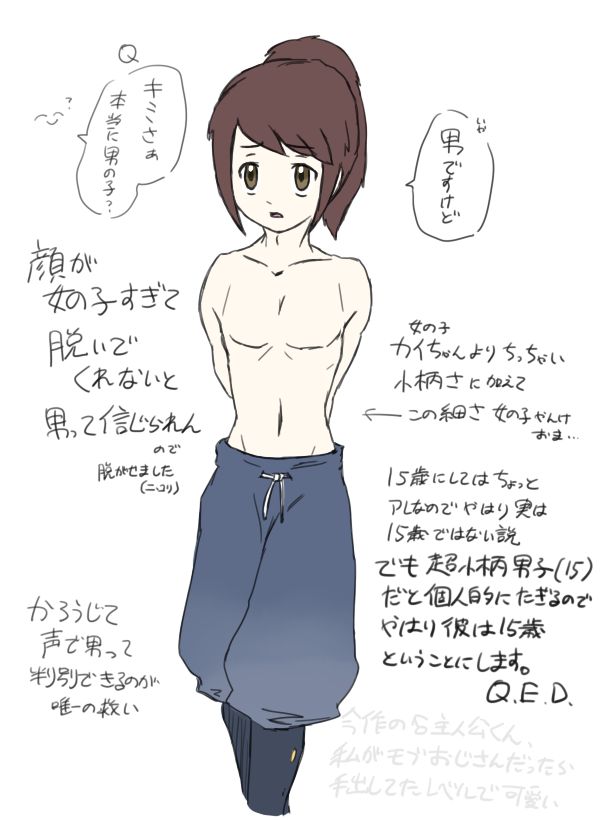 Q
キミさぁ
本当に男の子?
?
いや
男ですけど
顔が
女の子すぎて
脱いで
くれないと
男って信じられん
ので
脱がせました
(ニコリ)
女の子
カイちゃんよりちっちゃい
小柄さに加えて
この細さ 女の子やんけ
おま…
15歳にしてはちょっと
アレなのでやはり実は
15歳ではない説
でも超小柄男子(15)
だと個人的にたぎるので
やはり彼は15歳
ということにします。
Q.E.D.
かろうじて
声で男って
判別できるのが
唯一の救い
今作の主人公くん、
私がモブおじさんだったら
手出してたレベルで可愛い